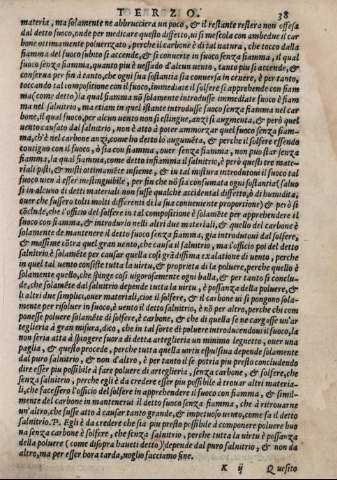 TERZO. 38
materia, ma solamente ne abbrucciera un poco, & il restante restera non offesa
dal detto fuoco, onde per medicare questo diffetto, ui si mescola con ambedue il car
bone ottimamente poluerizzato, perche il carbone è di tal natura, che tocco dalla
fiamma del fuoco subito si accende, & si conuerte in fuoco senza fiamma, il qual
fuoco senza fiamma, quanto piu è uessado d'alcun uento, tanto piu si accende, &
conserua per fin à tanto, che ogni sua sostantia sia conuersa in cenere, è per tanto,
toccando tal compositione con il fuoco, immediate il solfere si apprehende con fiam
ma (come detto) la qual fiamma nõ solamente introdusse immediate fuoco è fiam
ma nel salnitrio, ma etiam in quel istante introdusse fuoco senza fiamma nel car
bone, il qual fuoco, per alcun uento non si estingue, anzi si augmenta, & però quel
uento causato dal salnitrio, non è atto à poter ammorzar quel fuoco senza fiam-
ma, ch'è nel carbone anzi, come ho detto lo augumẽta, & perche il solfere essendo
contiguo con il fuoco, ò sia con fiamma, ouer senza fiamma, non puo star senza
fiamma, la qual fiamma, come detto infiamma il salnitrio, è però questi tre mate-
riali pisti, & misti ottimamẽte insieme, & in tal mistura introdutoui il fuoco tal
fuoco uien à esser inestinguibile, per fin che nõ sia consumata ogni sua sostantia (saluo
si in alcuno di detti materiali non fusse qualche accidental diffetto, ò di humidita,
ouer che fussero tolti molti differenti dela sua conueniente proportione) & per ò si
cõclude, che l'officio del solfere in tal compositione è solamẽte per apprehendere il
fuoco con fiamma, & introdurlo nelli altri due materiali, & quello del carbone è
solamente de mantenere il detto fuoco senza fiamma, gia introdutoui dal solfere,
& massime cõtra quel gran uento, che causa il salnitrio, ma l'officio poi del detto
salnitrio è solamẽte per causar quella cosi grãdissima exalatione di uento, perche
in quel tal uento consiste tutta la uirtu, & proprieta di la poluere, perche quello è
solamente quello, che spinge cosi uigorosamente ogni balla, & per tanto si conclu-
de, che solamẽte dal salnitrio depende tutta la uirtu, è possanza della poluere, &
li altri due simplici, ouer materiali, cioe il solfere, & il carbone ui si pongono sola-
mente per risoluer in fuoco, è uento il detto salnitrio, è nõ per altro, perche chi com
ponesse poluere solamẽte de solfere, è carbone, & che di quella se ne cargasse un'ar
tegliaria à gran misura, dico, che in tal sorte di poluere introducendoui il fuoco, la
non seria atta à spingere fuora di detta artegliaria un minimo legnetto, ouer una
paglia, & questo procede, perche tutta quella uirtu espulsiua depende solamente
dal puro salnitrio, & non d'altro, è per tanto el se potria piu presto concludendo
dire esser piu possibile à fare poluere di artegliaria, senza carbone, & solfere, che
senza salnitrio, perche egli è da credere esser piu possibile à trouar altri materia-
li, che facessero l'officio del solfere in apprehendere il fuoco con fiamma, & simil-
mente del carbone in mantenerui il detto fuoco senza fiamma, che à ritrouarne
un'altro, che fusse atto à causar tanto grande, & impetuoso uento, come fa il detto
salnitrio. P. Egli è da credere che sia piu presto possibile à componere poluere buo
na senza carbone è solfere, che senza salnitrio, perche tutta la uirtu è possanza
della poluere (come disopra haueti detto) depende dal puro salnitrio, & non da
altro, ma per esser hora tarda, uoglio facciamo fine.
K ij Quesito